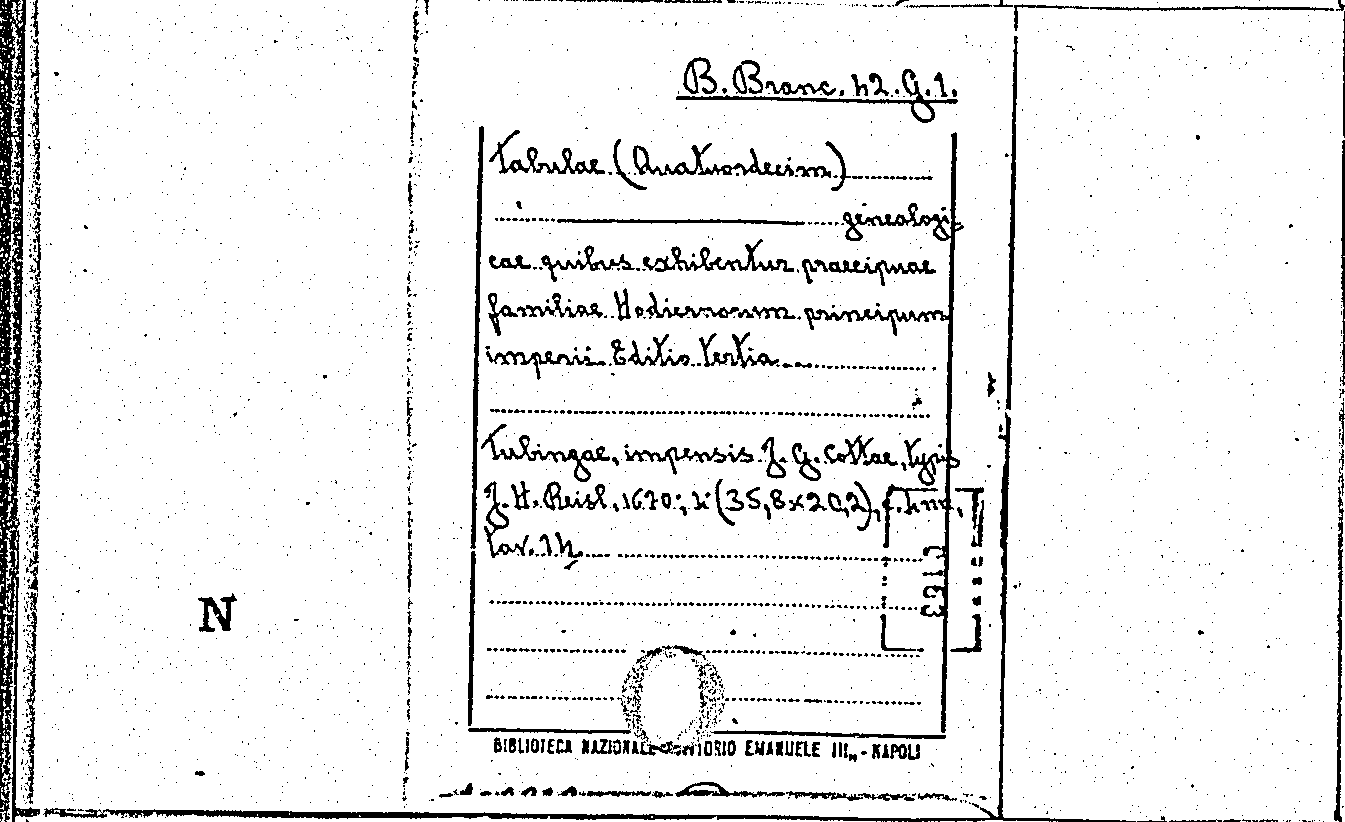 B. Branc. 42. G. 1.
Tabulae (Quatuordecim)
genealogi-
cae quibus exhibentur praecipuae
familiae Hodiernorum principum
imperii Editio tertia
Tubingae, impensis J. G. Cottae, typis
J. H. Reisl, 1670; 2° (35,8x20,2),
tav. 14.
N
BIBLIOTECA NAZIONALE VITTORIO EMANUELE III„ - NAPOLI